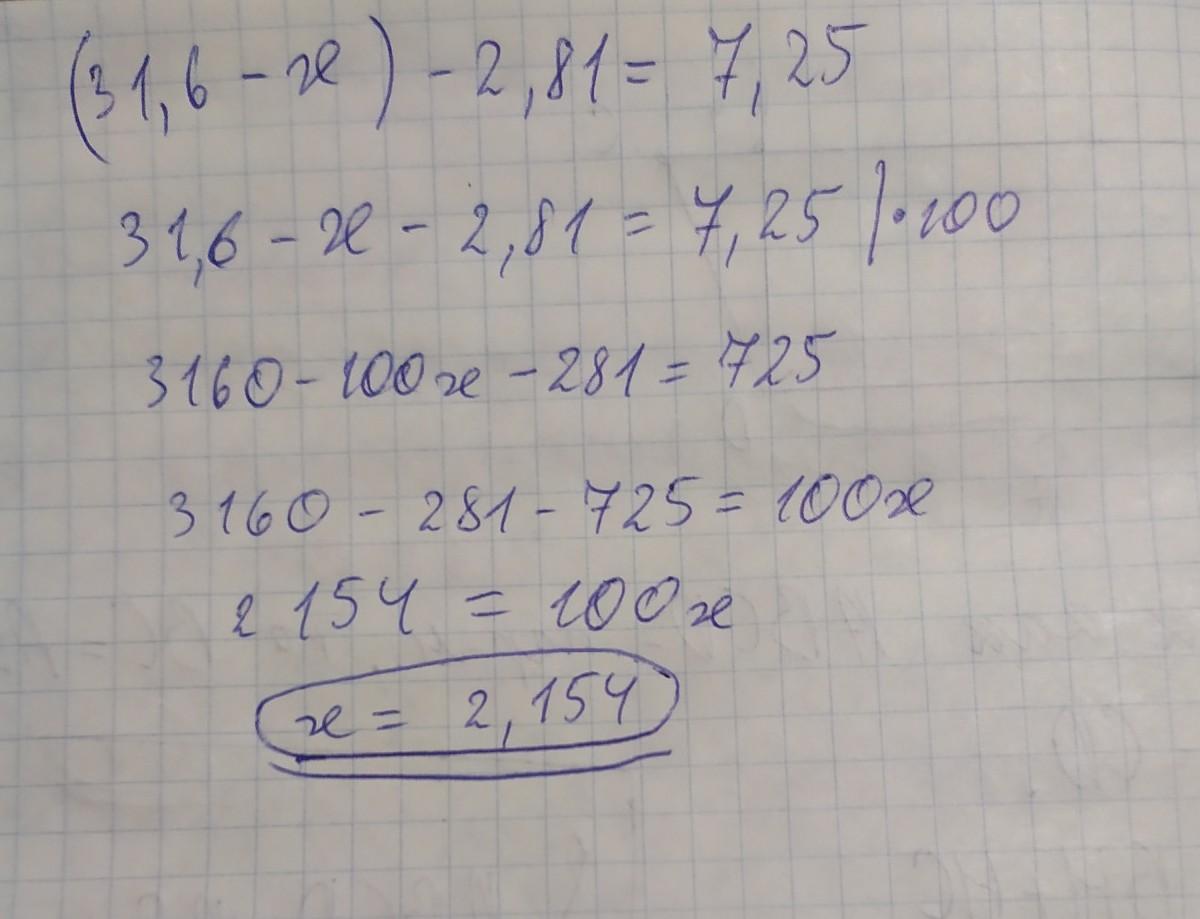 (31,6 - x) - 2,81 = 7,25
31,6 - x - 2,81 = 7,25 | · 100
3160 - 100x - 281 = 725
3160 - 281 - 725 = 100x
2154 = 100x
x = 2,154